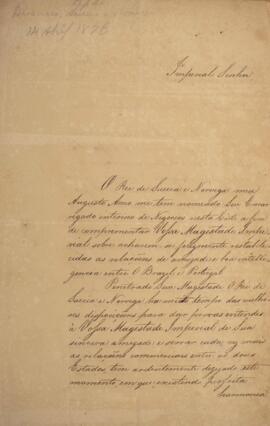 Imperial Senhor
O Rei de Suecia e Noruega meu
Augusto Amo me tem nomeado Seu Encar-
regado interino de Negocios nesta Corte a fim
de comprimentar Vossa Magestade Impe-
rial sobre acharem-se felizmente restable-
cidas as relações de amizade e boa intelli-
gencia entre O Brazil e Portugal
Penetrado Sua Magestade O Rei de
Suecia e Noruega ha muito tempo das melho-
res disposições para dar provas
à Vossa Magestade Imperial de Sua
sincera amizade e cada vez
mais as relações commerciaes entre os dous
Estados, tem ardentemente dezejado este
momento em que existindo perfeita
harmonia